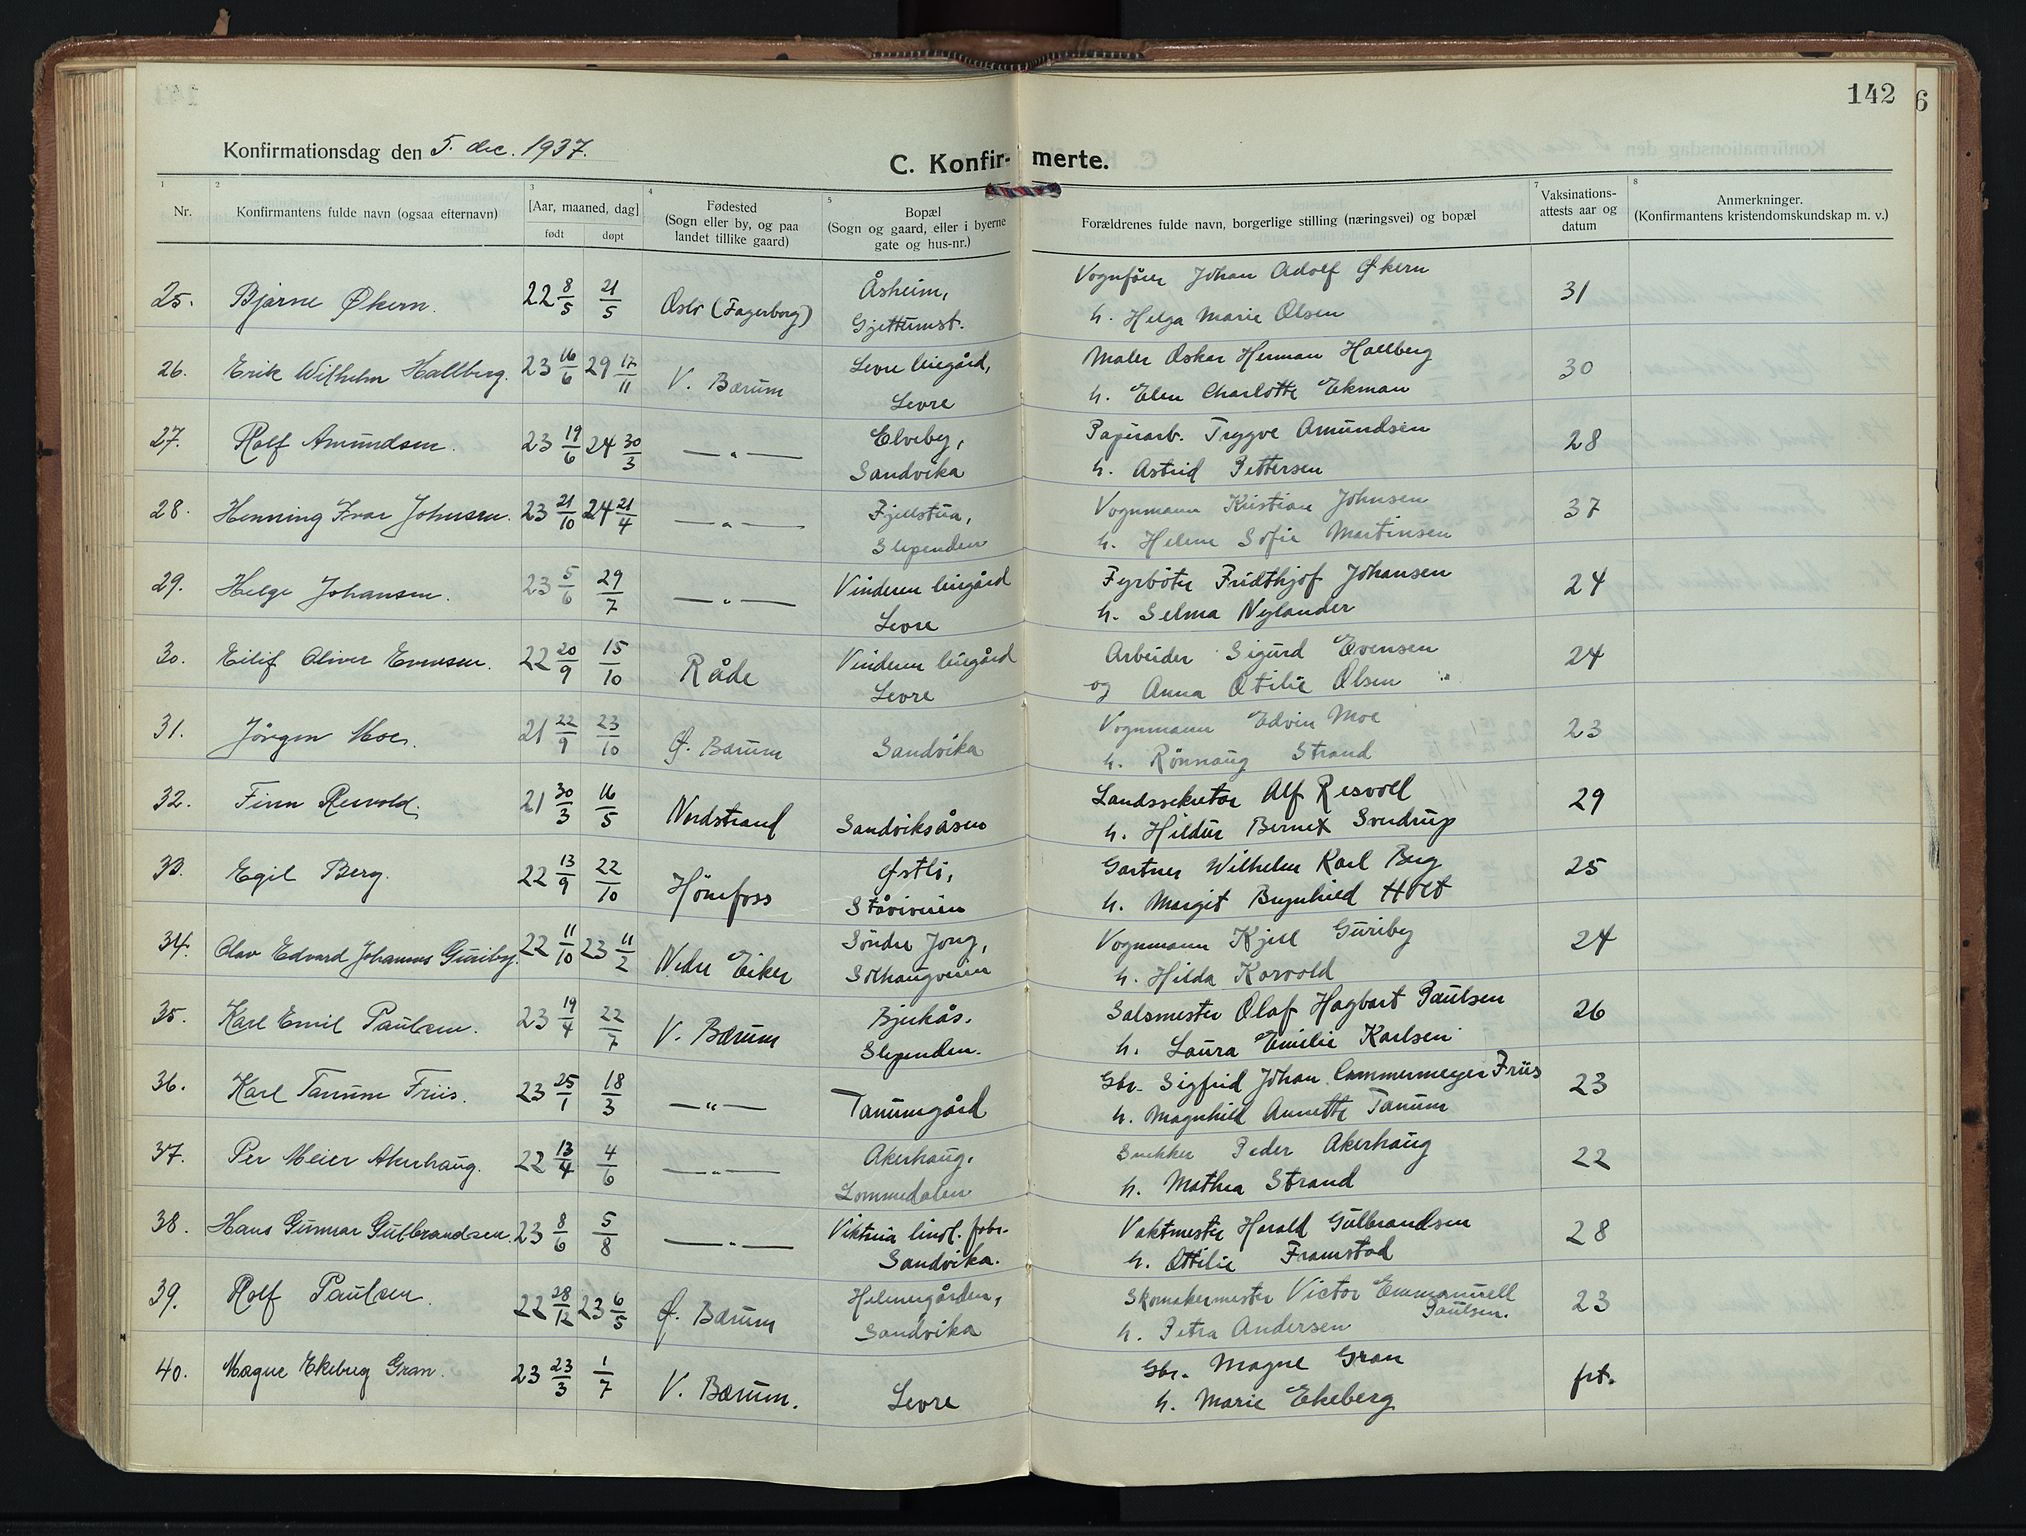 142
6
Konfirmationsdag den 5. dec. 1937.
C. Konfir- merte.
1 2 3 4 5 7 8
Nr.
Konfirmantens fulde navn (ogsaa efternavn)
[Aar, maaned, dag]
født døpt
Fødested
(Sogn eller by, og paa
landet tillike gaard)
Bopæl
(Sogn og gaard, eller i byerne
gate og hus-nr.)
Forældrenes fulde navn, borgerlige stilling (næringsvei) og bopæl
Vaksinations-
attests aar og
datum
Anmerkninger.
(Konfirmantens kristendomskundskap m. v.)
25. Bjarne Økern. 22 8/5 21/5 Oslo (Fagerborg) Åsheim, Vognfører Johan Adolf Økern 31
Gjettumst. h. Helga Marie Olsen
26. Erik Wilhelm Hallberg. 23 16/6 29 17/11 V. Bærum Levre leiegård, Maler Oskar Herman Hallberg 30
Levre h. Elen Charlotte Ekman
27. Rolf Amundsen. 23 19/6 24 30/3 — " — Elveby, Papirarb. Trygve Amundsen 28
Sandvika h. Astrid Pettersen
28. Henning Ivar Johnsen. 23 21/10 24 21/4 — " — Fjellstua, Vognmann Kristian Johnsen 37
Slependen h. Helene Sofie Martinsen
29. Helge Johansen. 23 5/6 29/7 — " — Vinderen leiegård Fyrbøter Fridthjof Johansen 24
Levre h. Selma Nylander
30. Eilif Oliver Evensen. 22 20/9 15/10 Råde Vinderen leiegård Arbeider Sigurd Evensen 24
Levre og Anna Otilie Olsen
31. Jørgen Moe. 21 22/9 23/10 Ø. Bærum Sandvika Vognmann Edvin Moe 23
h. Rønnaug Strand
32. Finn Resvold. 21 30/3 16/5 Nordstrand Sandviksåsen Landssekretær Alf Resvoll 29
h. Hildur Sverdrup
33. Egil Berg. 22 13/9 22/10 Hønefoss Østli, Gartner Wilhelm Karl Berg 25
Ståviveien h. Margit Brynhild Holt
34. Olav Edvard Johannes Guriby. 22 11/10 23 11/2 Nedre Eiker Søndre Jong, Vognmann Kjell Guriby 24
Solhaugveien h. Hilda Korvold
35. Karl Emil Paulsen. 23 19/4 22/7 V. Bærum Bjerkås. Salsmester Olaf Hagbart Paulsen 26
Slependen. h. Laura Emilie Karlsen
36. Karl Tanum Friis. 23 25/1 18/3 — " — Tanumgård Gbr. Sigfrid Johan Cammermeyer Friis 23
h. Magnhild Annette Tanum
37. Per Meier Akerhaug. 22 13/4 4/6 — " — Akerhaug. Snekker Peder Akerhaug 22
Lommedalen h. Mathea Strand
38. Hans Gunnar Gulbrandsen. 23 8/6 5/8 — " — Viktoria linol. fabr. Vaktmester Harald Gulbrandsen 28
Sandvika. h. Ottilie Framstad
39. Rolf Paulsen. 22 28/12 23 6/5 Ø. Bærum Helmergården, Skomakermester Victor Emmanuell 23
Paulsen.
Sandvika h. Petra Andersen
40. Magne Ekeberg Gran. 23 23/3 1/7 V. Bærum. Levre Gbr. Magne Gran frt.
h. Marie Ekeberg